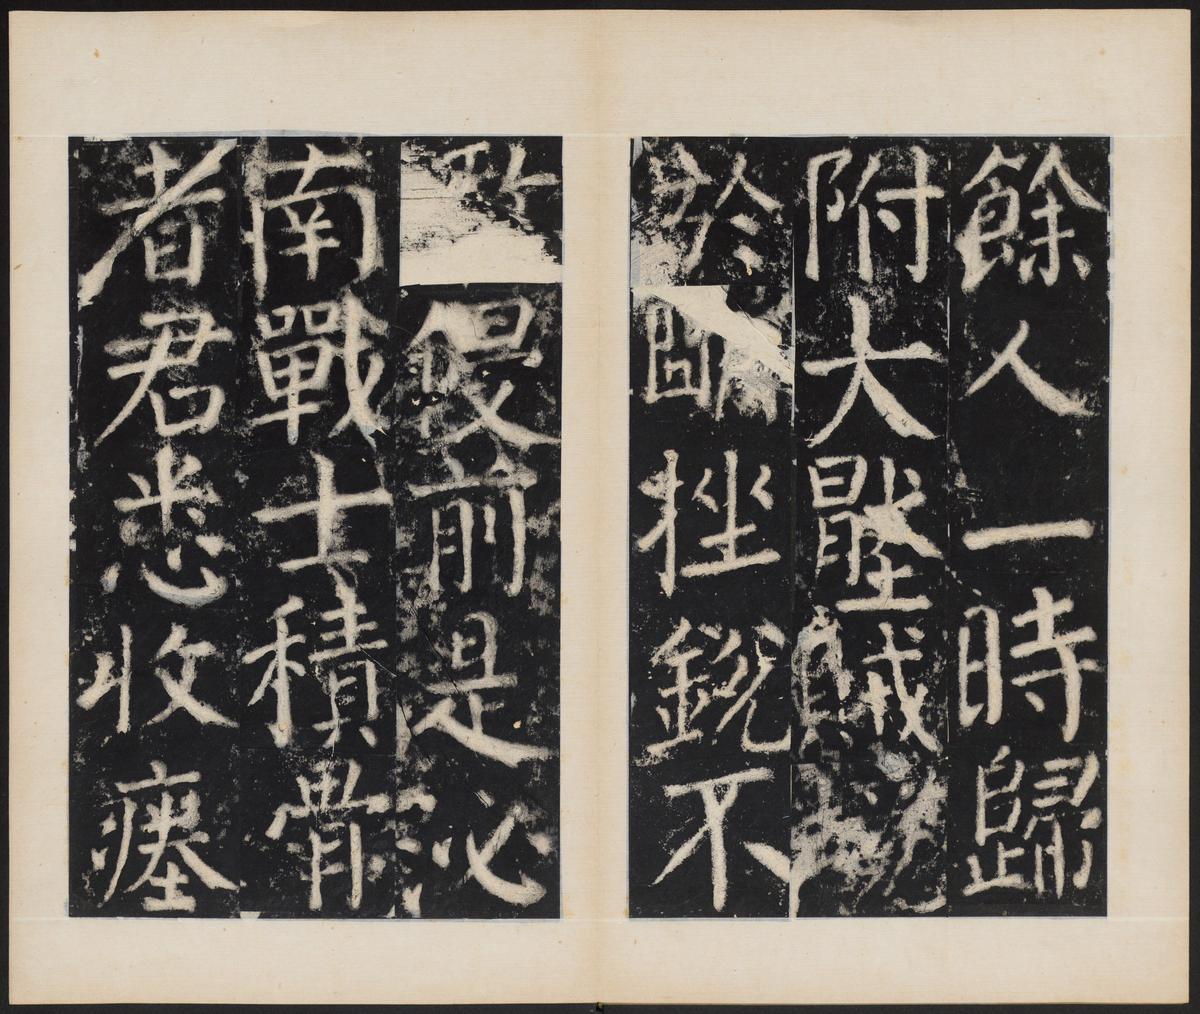 餘人一時歸
附大壓賊
於明挫銳不
敢侵前是泌
南戰士積骨
者君悉收瘞